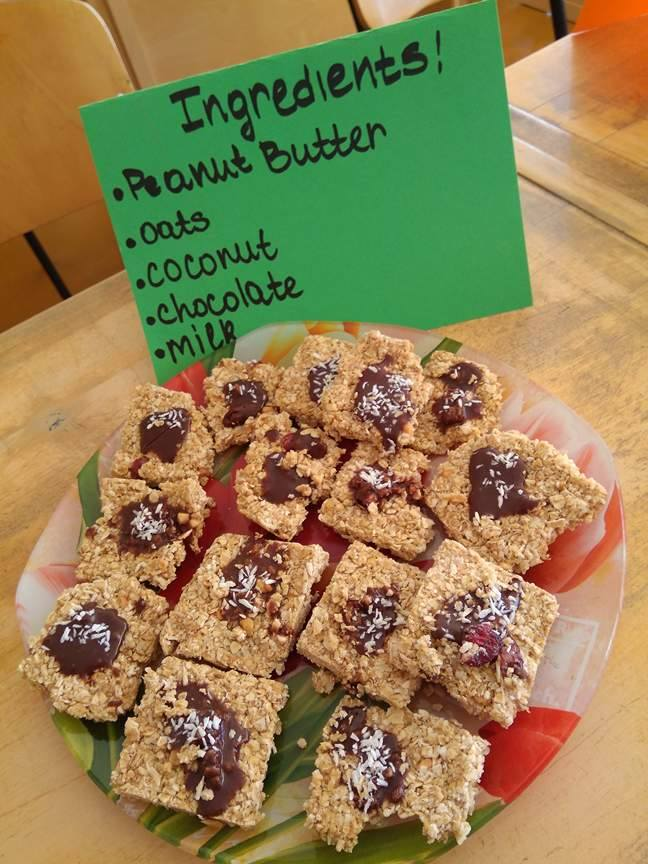 Ingredients!
• Peanut Butter
• oats
• coconut
• chocolate
• milk